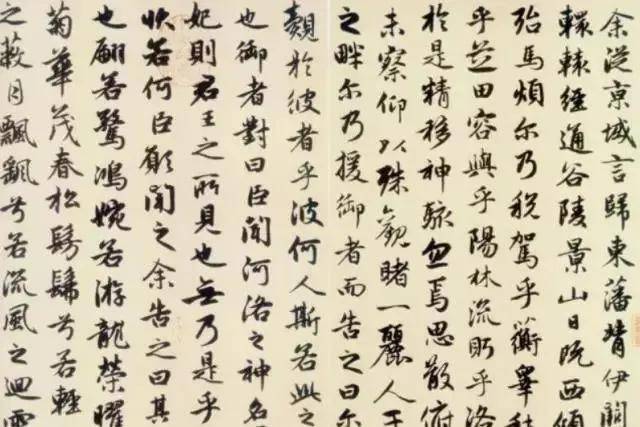 余從京城言歸東藩背伊闕
轘轅經通谷陵景山日既西傾
殆馬煩尔乃稅駕乎蘅皋秣
乎芝田容與乎陽林流眄乎洛
於是精移神駭忽焉思散俯
未察仰以殊觀睹一麗人于
之畔尔乃援御者而告之曰尔
覿於彼者乎彼何人斯若此之
也御者對曰臣聞河洛之神名
妃則君王之所見也無乃是乎
狀若何臣願聞之余告之曰其
也翩若驚鴻婉若游龍榮曜
菊華茂春松髣髴兮若輕
之蔽月飄飄兮若流風之迴雪